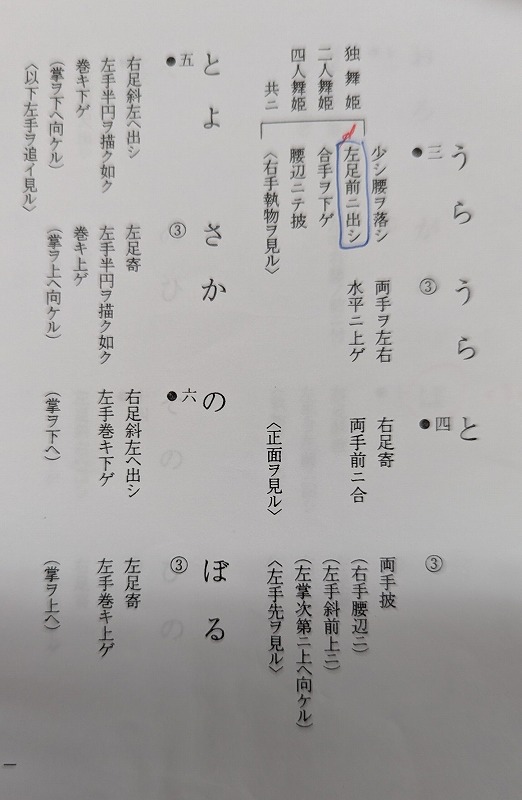 うらうらと
●三
③
●四
③
少シ腰ヲ落シ
左足前ニ出シ
合手ヲ下ゲ
腰辺ニテ披
〈右手執物ヲ見ル〉
独舞姫
二人舞姫
四人舞姫
共ニ
両手ヲ左右
水平ニ上ゲ
右足寄
両手前ニ合
〈正面ヲ見ル〉
両手披
(右手腰辺ニ)
(左手斜前上ニ)
(左掌次第ニ上ヘ向ケル)
〈左手先ヲ見ル〉
とよさかのぼる
●五
③
●六
③
右足斜左ヘ出シ
左手半円ヲ描ク如ク
巻キ下ゲ
(掌ヲ下ヘ向ケル)
〈以下左手ヲ追イ見ル〉
左足寄
左手半円ヲ描ク如ク
巻キ上ゲ
(掌ヲ上ヘ向ケル)
右足斜左ヘ出シ
左手巻キ下ゲ
(掌ヲ下ヘ)
左足寄
左手巻キ上ゲ
(掌ヲ上ヘ)
一